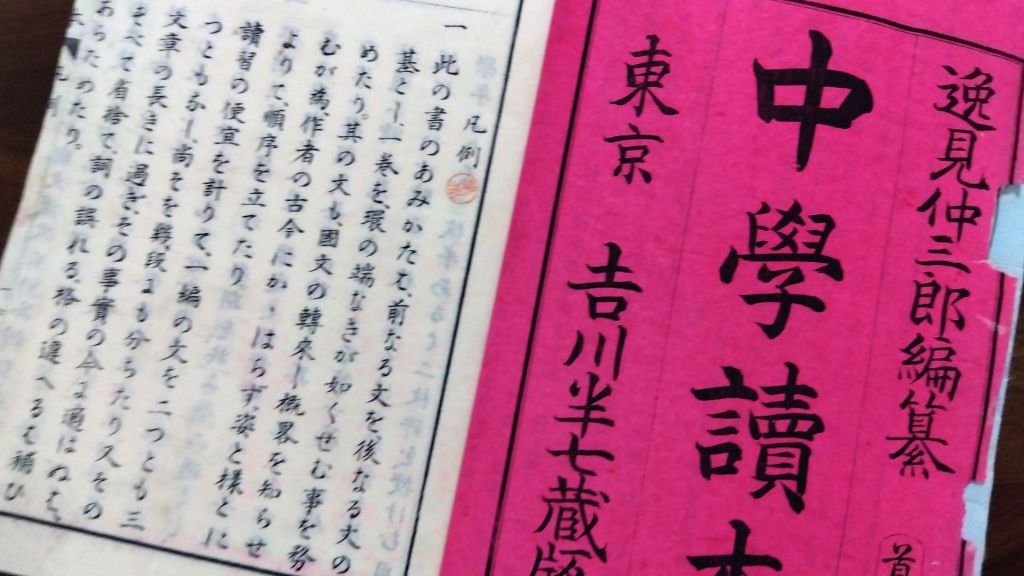 逸見仲三郎編纂
中學讀本
東京
吉川半七蔵版
凡例
一此の書のあみかたは、前なる文を、後なる文の
基とし、一巻を、環の端なきが如くせむ事を務
めたり。其の文も、國文の轉來し梳界を知らせ
むが為、作者の古今にかゝはらず、姿と様とに
より て、順序を立てたり
讀習の便宜を計りて、一編の文を二つとも三
つともなし、尚そを、段にも分ちたり又その
文章の長きに過ぎ、その事實の今に適はぬは、
そべて省捨て、詞の誤れる、格の違へるは補ひ
あらためたり。